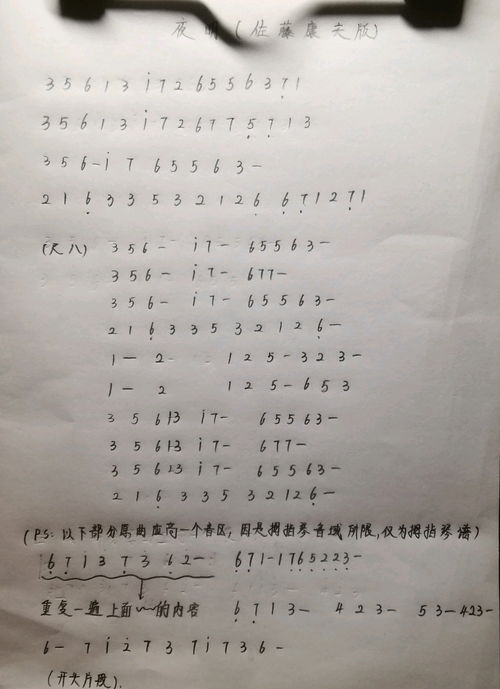 夜明(佐藤康夫版)
3 5 6 1 3 i 7 2 6 5 5 6 3 7̣ 1
3 5 6 1 3 i 7 2 6 7 7 5̣ 7̣ 1 3
3 5 6 - i 7 6 5 5 6 3 -
2 1 6̣ 3 3 5 3 2 1 2 6̣ 6̣ 7̣ 1 2 7̣ 1
(尺八) 3 5 6 - i 7 - 6 5 5 6 3 -
3 5 6 - i 7 - 6 7 7 -
3 5 6 - i 7 - 6 5 5 6 3 -
2 1 6̣ 3 3 5 3 2 1 2 6̣ -
1 - 2 1 2 5 - 3 2 3 -
1 - 2 1 2 5 - 6 5 3
3 5 6 1 3 i 7 - 6 5 5 6 3 -
3 5 6 1 3 i 7 - 6 7 7 -
3 5 6 1 3 i 7 - 6 5 5 6 3 -
2 1 6̣ 3 3 5 3 2 1 2 6̣ -
(PS:以下部分原曲应高一个音区,因是拇指琴音域所限,仅为拇指琴谱)
6̣ 7̣ 1 3 7̣ 3 6̣ 2 - 6̣ 7̣ 1 - 1 7̣ 6̣ 5̣ 2 2 3 -
重复一遍上面~~的内容 6̣ 7̣ 1 3 - 4 2 3 - 5 3 - 4 2 3 -
6 - 7 i 2 7 3 7 i 7 3 6 -
(开头片段).